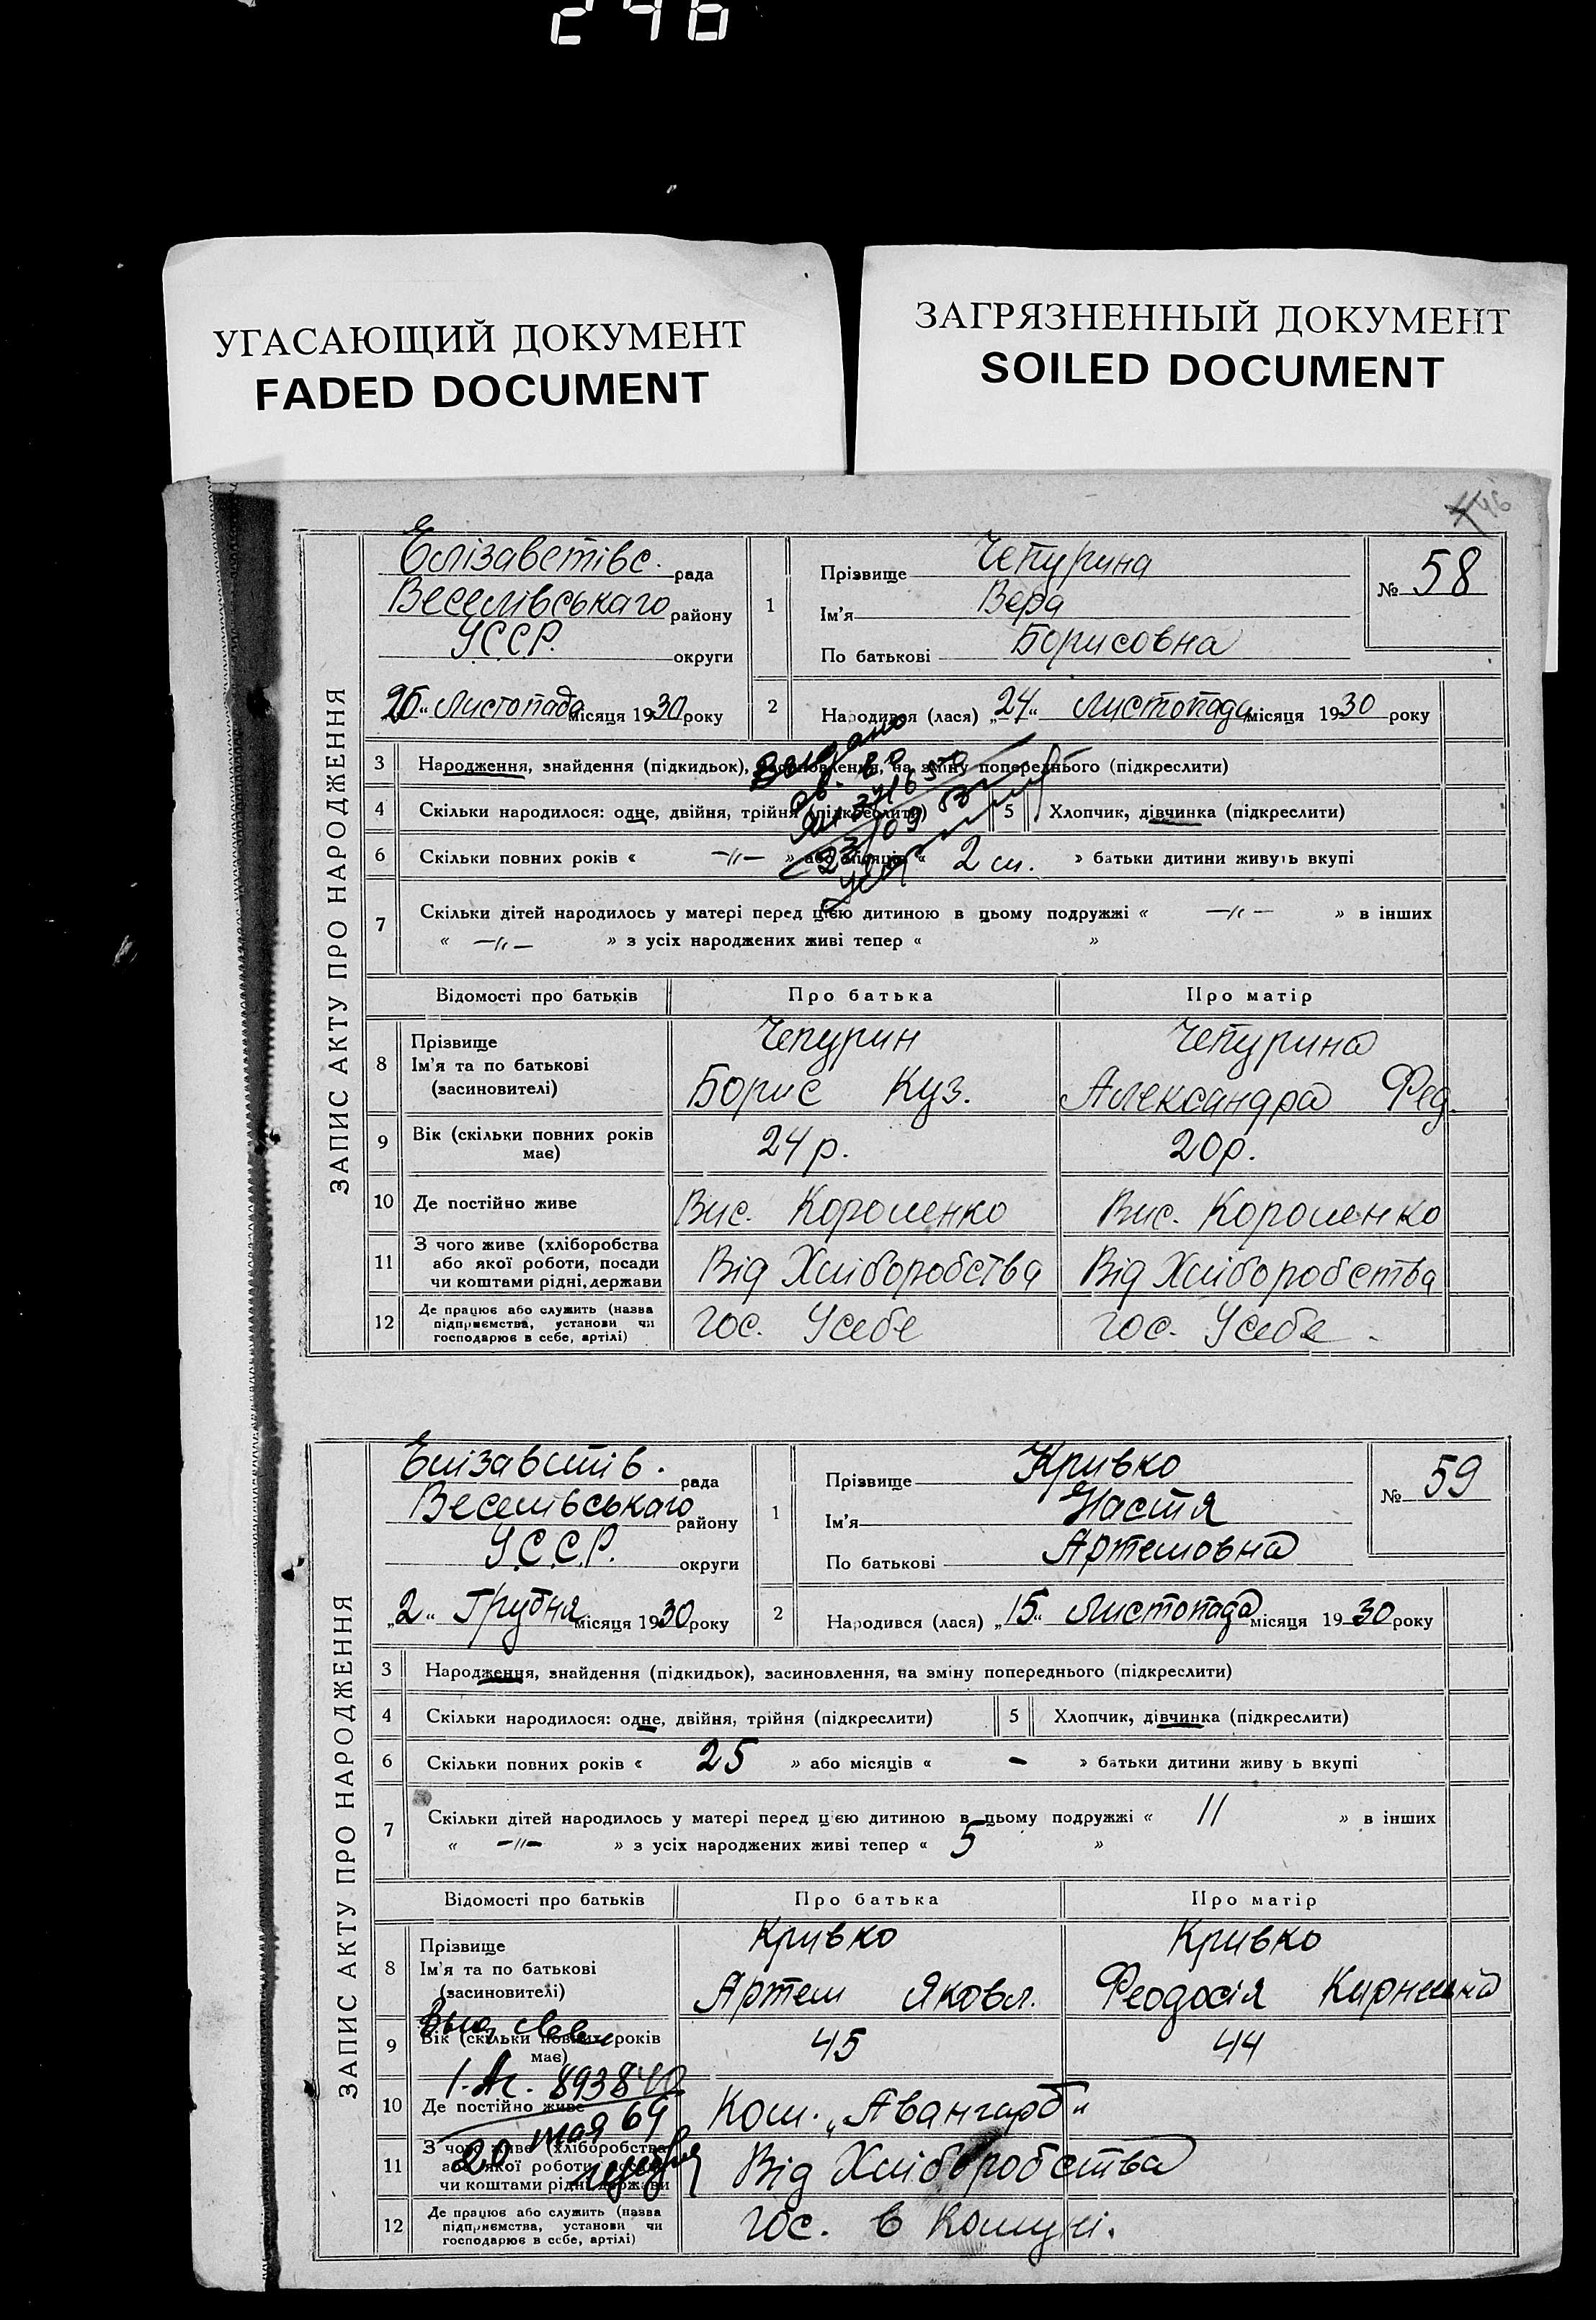 246
УГАСАЮЩИЙ ДОКУМЕНТ
FADED DOCUMENT
ЗАГРЯЗНЕННЫЙ ДОКУМЕНТ
SOILED DOCUMENT
46
ЗАПИС АКТУ ПРО НАРОДЖЕННЯ
Елізаветівс. рада
Веселівськаго району
УССР. округи
26 „ Листопада місяця 1930 року
1
Прізвище Чепурина
Ім'я Вера
По батькові Борисовна
№ 58
2 Народився (лася) „24“ Листопада місяця 1930 року
3 Народження, знайдення (підкидьок), засиновлення, на зміну попереднього (підкреслити)
4 Скільки народилося: одне, двійня, трійня (підкреслити) 5 Хлопчик, дівчинка (підкреслити)
6 Скільки повних років « —„— » або місяців « 2 м. » батьки дитини живуть вкупі
7 Скільки дітей народилось у матері перед цією дитиною в цьому подружжі « —„— » в інших
« —„— » з усіх народжених живі тепер « »
Відомості про батьків Про батька Про матір
8 Прізвище Чепурин Чепурина
Ім'я та по батькові Борис Куз. Александра Фед.
(засиновителі)
9 Вік (скільки повних років має) 24 р. 20 р.
10 Де постійно живе Вис. Короленко Вис. Короленко
11 З чого живе (хліборобства або якої роботи, посади чи коштами рідні, держави Від Хліборобства Від Хліборобства
12 Де працює або служить (назва підприємства, установи чи господарює в себе, артілі) гос. Усебе гос. Усебе.
ЗАПИС АКТУ ПРО НАРОДЖЕННЯ
Елізаветів. рада
Веселівськаго району
У.С.С.Р. округи
„2„ Грудня місяця 1930 року
1
Прізвище Кривко
Ім'я Настя
По батькові Артемовна
№ 59
2 Народився (лася) „15“ Листопада місяця 1930 року
3 Народження, знайдення (підкидьок), засиновлення, на зміну попереднього (підкреслити)
4 Скільки народилося: одне, двійня, трійня (підкреслити) 5 Хлопчик, дівчинка (підкреслити)
6 Скільки повних років « 25 » або місяців « - » батьки дитини живу ь вкупі
7 Скільки дітей народилось у матері перед цією дитиною в цьому подружжі « 11 » в інших
« —„— » з усіх народжених живі тепер « 5 »
Відомості про батьків Про батька Про матір
8 Прізвище Кривко Кривко
Ім'я та по батькові Артем Яковл. Феодосія
(засиновителі)
9 Вік (скільки повних років має) 45 44
10 Де постійно живе Ком. „Авангард“
11 З чого живе (хліборобства або якої роботи, посади чи коштами рідні, держави Від Хліборобства
12 Де працює або служить (назва підприємства, установи чи господарює в себе, артілі) гос. в Комуні.
893840
20 мая 69